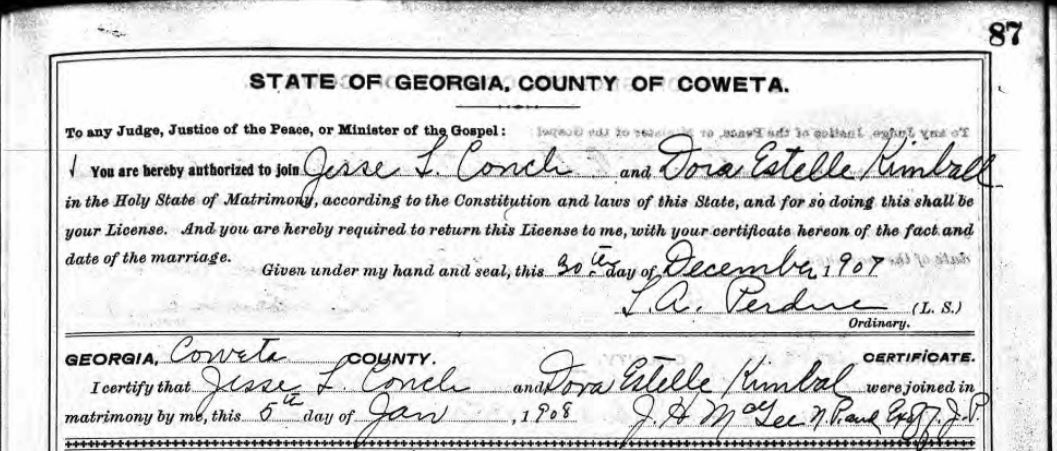 87
STATE OF GEORGIA, COUNTY OF COWETA.
To any Judge, Justice of the Peace, or Minister of the Gospel:
You are hereby authorized to join Jesse L. Conch and Dora Estelle Kimball
in the Holy State of Matrimony, according to the Constitution and laws of this State, and for so doing this shall be
your License. And you are hereby required to return this License to me, with your certificate hereon of the fact and
date of the marriage.
Given under my hand and seal, this 30th day of December, 1907
L. A. Perdue (L. S.)
Ordinary.
GEORGIA, Coweta COUNTY. CERTIFICATE.
I certify that Jesse L. Conch and Dora Estelle Kimbal were joined in
matrimony by me, this 5th day of Jan, 1908 J. H. McGee N. P. and J. P.